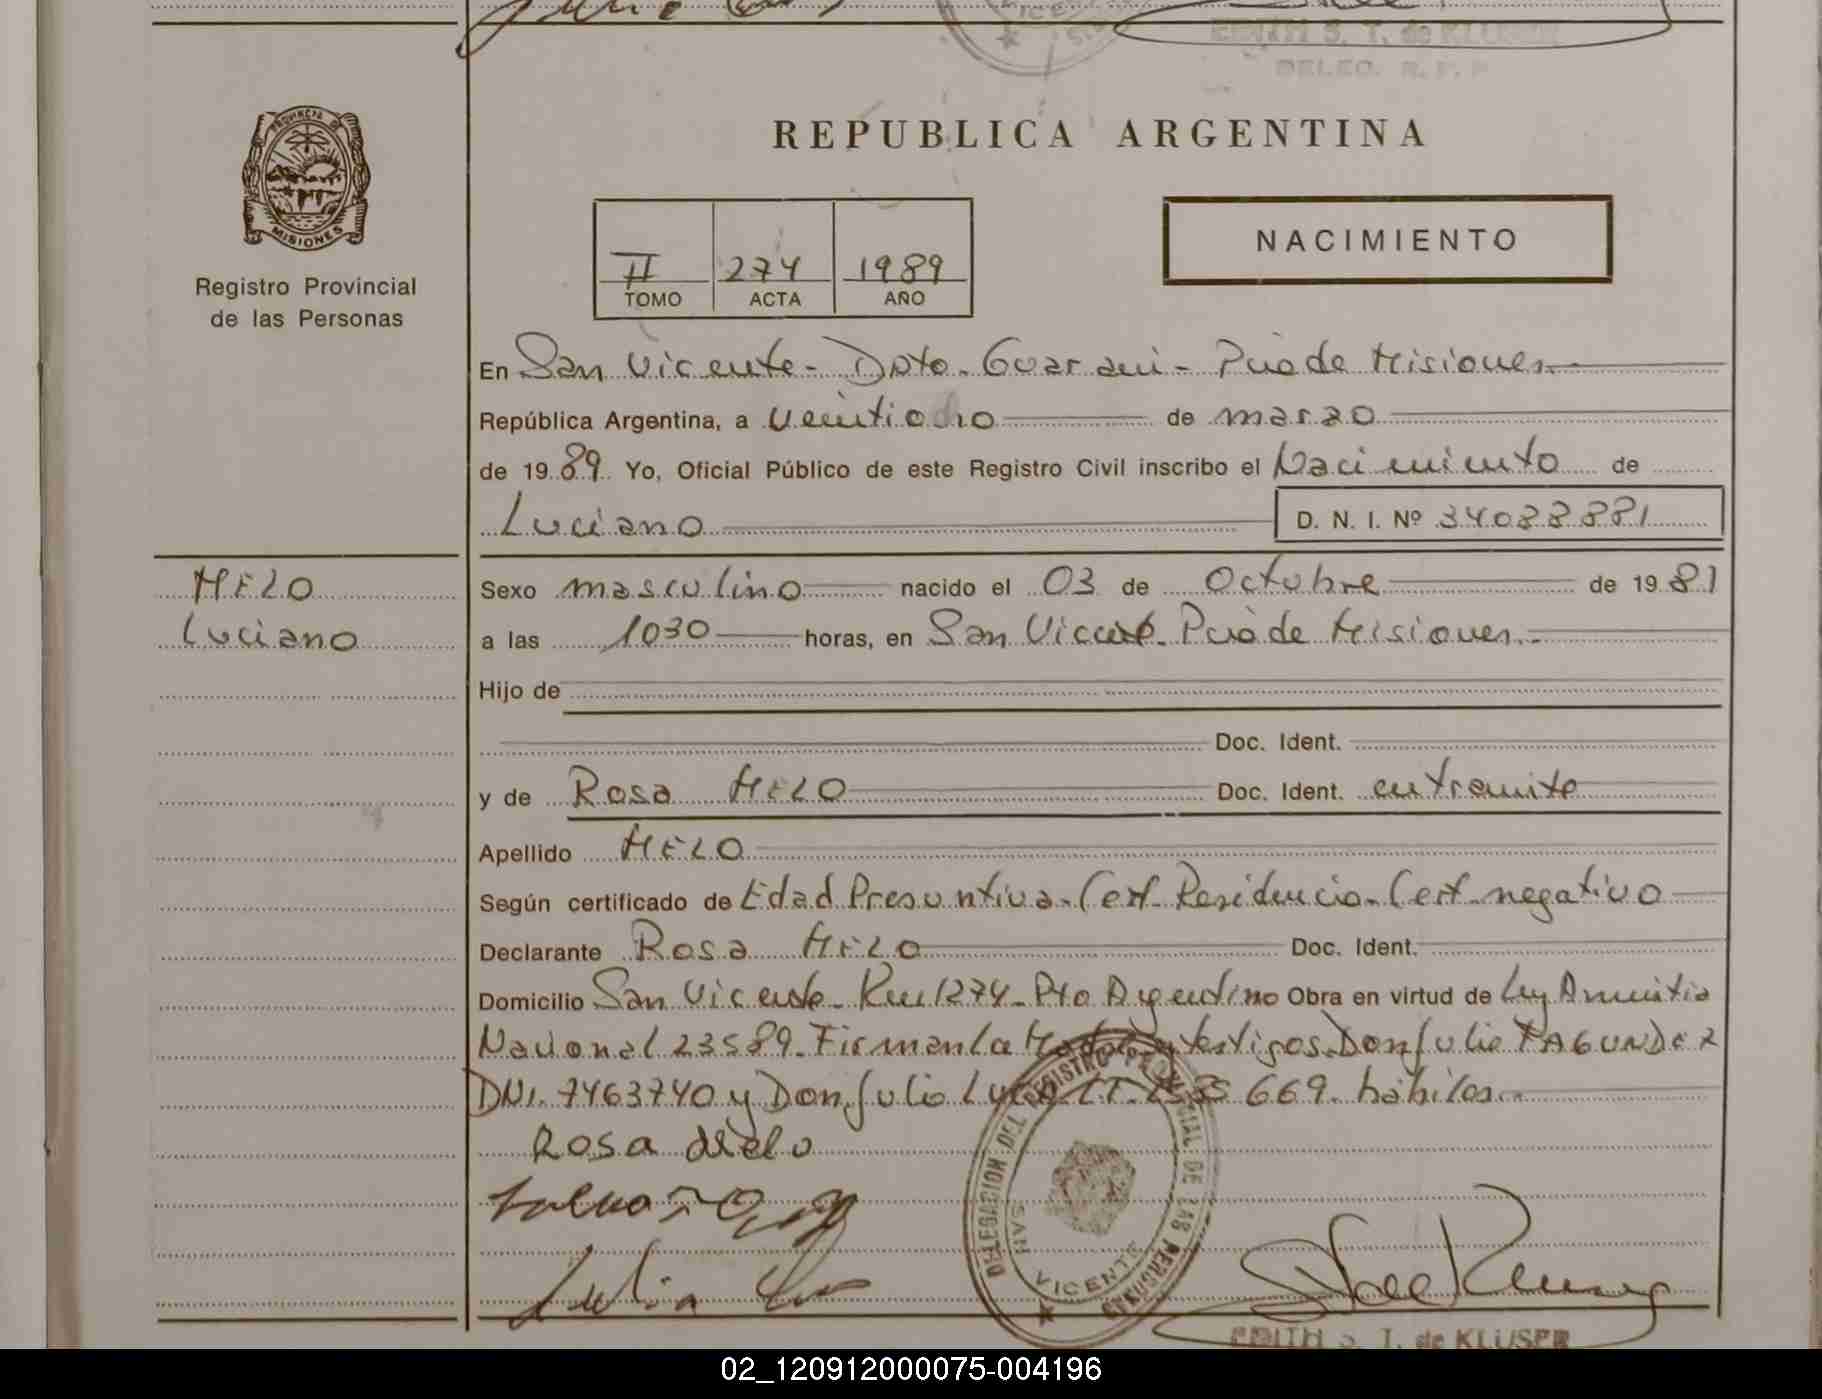 EDITH S. T. de KLUSER
DELEG. R. P. P.
VICENTE
PROVINCIA DE
MISIONES
Registro Provincial
de las Personas
REPUBLICA ARGENTINA
II 274 1989
TOMO ACTA AÑO
NACIMIENTO
En San Vicente - Dpto. Guarani - Pcia de Misiones.
República Argentina, a veintiocho de marzo
de 1989 Yo, Oficial Público de este Registro Civil inscribo el Nacimiento de
Luciano
D. N. I. Nº 34088881
MELO
Luciano
Sexo masculino nacido el 03 de Octubre de 1981
a las 1030 horas, en San Vicente - Pcia de Misiones.-
Hijo de
Doc. Ident.
y de Rosa MELO Doc. Ident. en tramite
Apellido MELO
Según certificado de Edad Presuntiva - Cert. Residencia - Cert. negativo
Declarante Rosa MELO Doc. Ident.
Domicilio San Vicente - Km 1274 - Pto Argentino Obra en virtud de Ley Amnistia
Nacional 23589. Firman la Madre y testigos Don Julio FAGUNDEZ
DNI. 7463740 y Don Julio 669. hábiles.-
Rosa Melo
DELEGACION DEL REGISTRO PROVINCIAL DE LAS PERSONAS
SAN VICENTE
EDITH S. T. de KLUSER
02_120912000075-004196